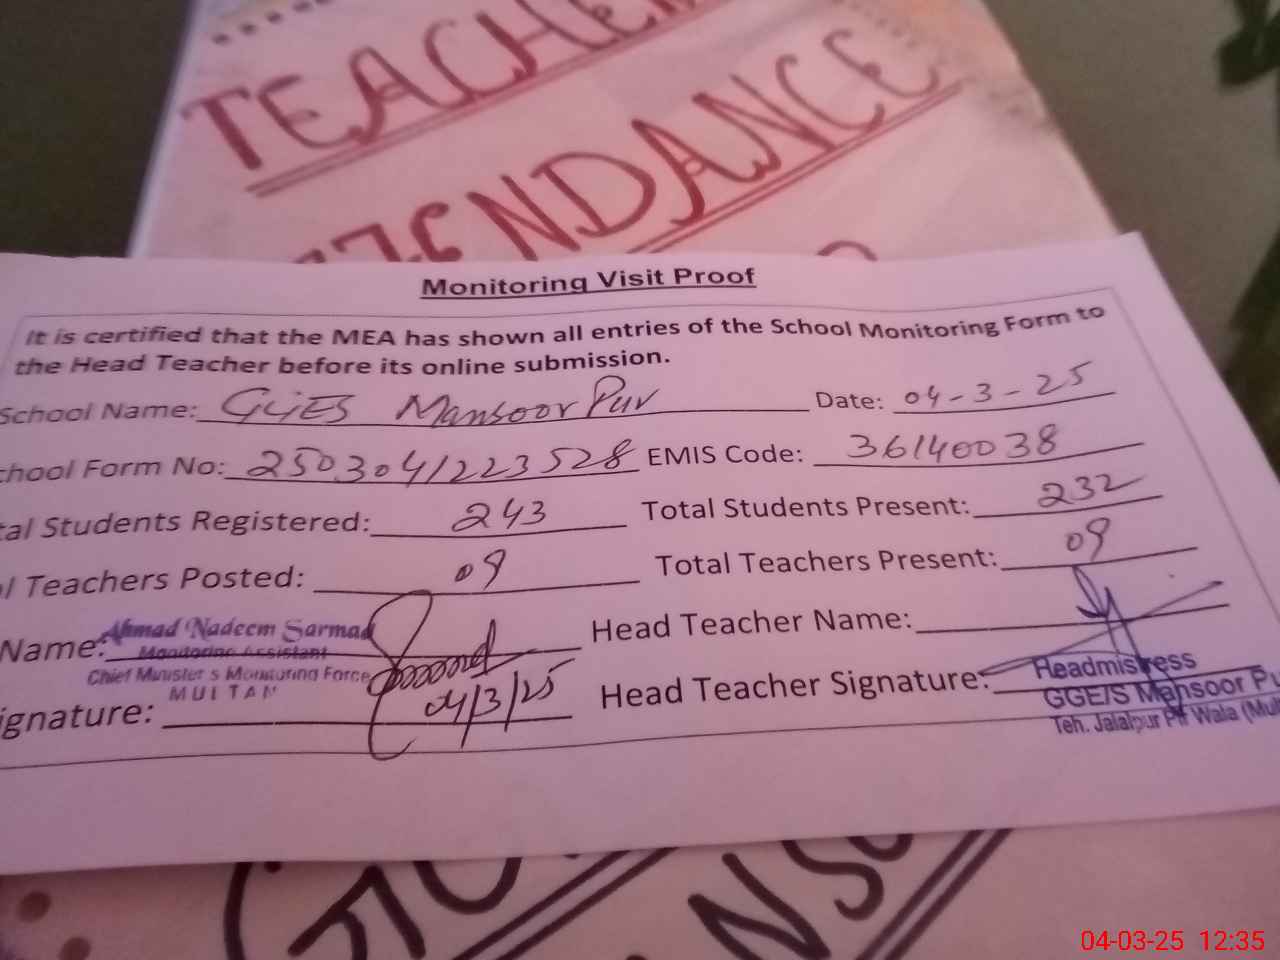 TEACHER
TTENDANCE
Monitoring Visit Proof
It is certified that the MEA has shown all entries of the School Monitoring Form to
the Head Teacher before its online submission.
School Name: GGES Mansoor Pur Date: 04-3-25
chool Form No: 2503041223528 EMIS Code: 36140038
tal Students Registered: 243 Total Students Present: 232
l Teachers Posted: 09 Total Teachers Present: 09
Name: Ahmad Nadeem Sarmad Head Teacher Name:
Monitoring Assistant
Chief Minister's Monitoring Force
MULTAN
ignature: 04/3/25 Head Teacher Signature:
Headmistress
GGE/S Mansoor Pu
Teh. Jalalpur Pir Wala (Mul
04-03-25 12:35